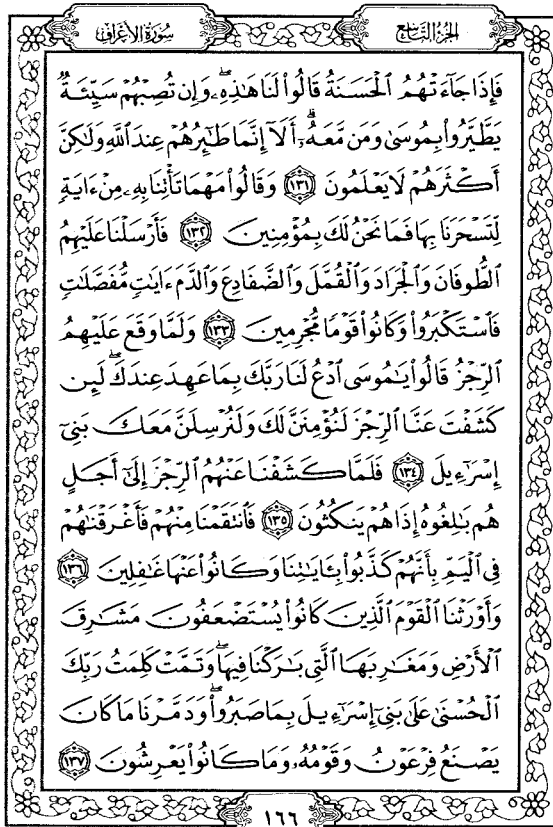 سُورَةُ الأَعْرَافِ
الجُزْءُ التَّاسِعُ
فَإِذَا جَآءَتْهُمُ ٱلْحَسَنَةُ قَالُوا۟ لَنَا هَٰذِهِۦۖ وَإِن تُصِبْهُمْ سَيِّئَةٌ
يَطَّيَّرُوا۟ بِمُوسَىٰ وَمَن مَّعَهُۥٓۗ أَلَآ إِنَّمَا طَٰٓئِرُهُمْ عِندَ ٱللَّهِ وَلَٰكِنَّ
أَكْثَرَهُمْ لَا يَعْلَمُونَ ١٣١ وَقَالُوا۟ مَهْمَا تَأْتِنَا بِهِۦ مِنْ ءَايَةٍ
لِّتَسْحَرَنَا بِهَا فَمَا نَحْنُ لَكَ بِمُؤْمِنِينَ ١٣٢ فَأَرْسَلْنَا عَلَيْهِمُ
ٱلطُّوفَانَ وَٱلْجَرَادَ وَٱلْقُمَّلَ وَٱلضَّفَادِعَ وَٱلدَّمَ ءَايَٰتٍ مُّفَصَّلَٰتٍ
فَٱسْتَكْبَرُوا۟ وَكَانُوا۟ قَوْمًا مُّجْرِمِينَ ١٣٣ وَلَمَّا وَقَعَ عَلَيْهِمُ
ٱلرِّجْزُ قَالُوا۟ يَٰمُوسَى ٱدْعُ لَنَا رَبَّكَ بِمَا عَهِدَ عِندَكَۖ لَئِن
كَشَفْتَ عَنَّا ٱلرِّجْزَ لَنُؤْمِنَنَّ لَكَ وَلَنُرْسِلَنَّ مَعَكَ بَنِىٓ
إِسْرَٰٓءِيلَ ١٣٤ فَلَمَّا كَشَفْنَا عَنْهُمُ ٱلرِّجْزَ إِلَىٰٓ أَجَلٍ
هُم بَٰلِغُوهُ إِذَا هُمْ يَنكُثُونَ ١٣٥ فَٱنتَقَمْنَا مِنْهُمْ فَأَغْرَقْنَٰهُمْ
فِى ٱلْيَمِّ بِأَنَّهُمْ كَذَّبُوا۟ بِـَٔايَٰتِنَا وَكَانُوا۟ عَنْهَا غَٰفِلِينَ ١٣٦
وَأَوْرَثْنَا ٱلْقَوْمَ ٱلَّذِينَ كَانُوا۟ يُسْتَضْعَفُونَ مَشَٰرِقَ
ٱلْأَرْضِ وَمَغَٰرِبَهَا ٱلَّتِى بَٰرَكْنَا فِيهَاۖ وَتَمَّتْ كَلِمَتُ رَبِّكَ
ٱلْحُسْنَىٰ عَلَىٰ بَنِىٓ إِسْرَٰٓءِيلَ بِمَا صَبَرُوا۟ۖ وَدَمَّرْنَا مَا كَانَ
يَصْنَعُ فِرْعَوْنُ وَقَوْمُهُۥ وَمَا كَانُوا۟ يَعْرِشُونَ ١٣٧
١٦٦